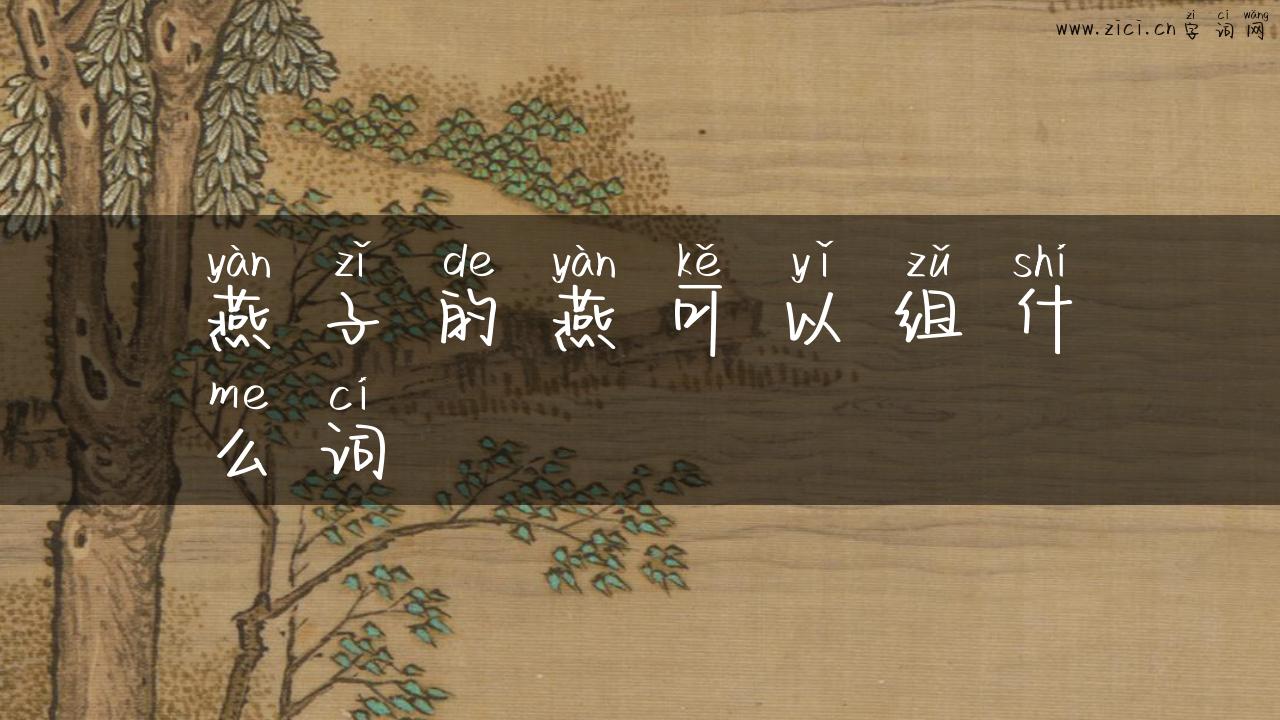 zì cí wǎng
www.zici.cn 字 词 网
yàn zǐ de yàn kě yǐ zǔ shí
燕 子 的 燕 可 以 组 什
me cí
么 词